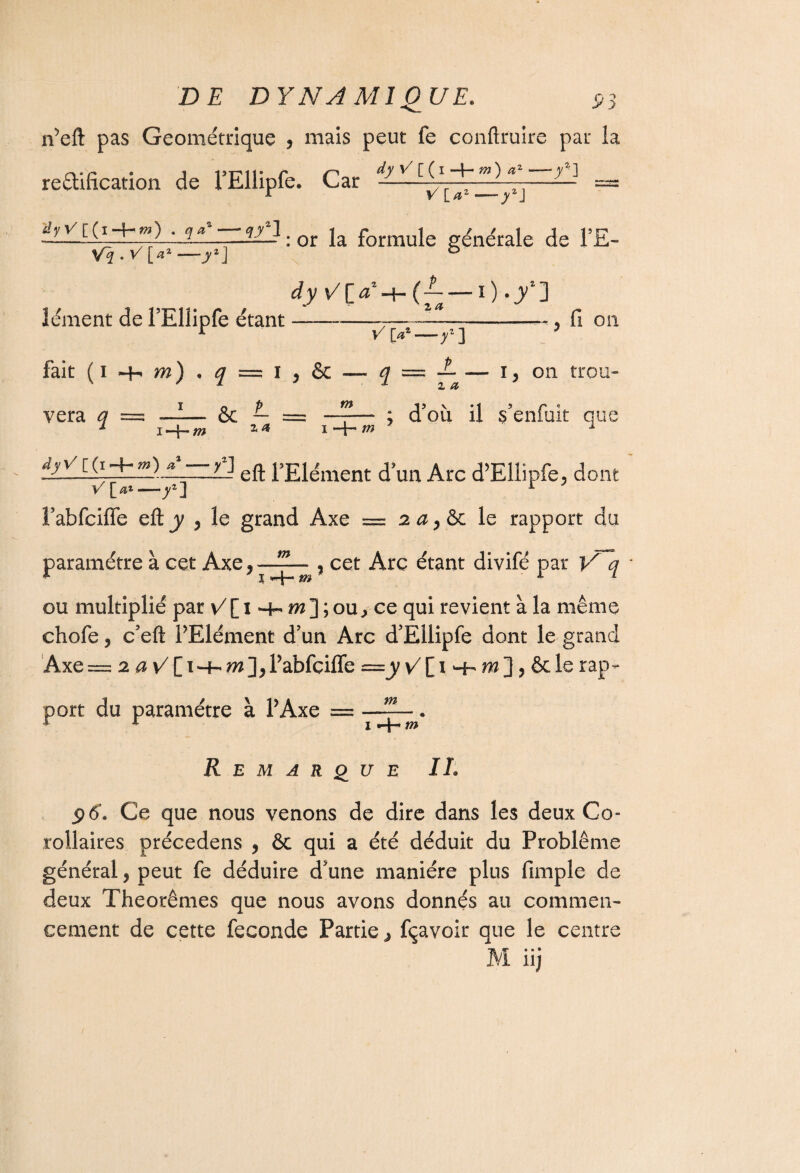 DE DYNAMIQUE. 93
n'eſt pas Geométrique, mais peut ſe conſtruire par la
rectification de l'Ellipſe. Car dy√[(1+m)a²—y²] / √[a²—y²] =
dy√[(1+m).qa²—qy²] / √q.√[a²—y²] : or la formule générale de l'E-
lément de l'Ellipſe étant dy√[a²+(p/2a—1).y²] / √[a²—y²], ſi on
fait (1+m).q = 1, & — q = p/2a — 1, on trou-
vera q = 1/1+m & p/2a = m/1+m ; d'où il s'enſuit que
dy√[(1+m)a²—y²] / √[a²—y²] eſt l'Elément d'un Arc d'Ellipſe, dont
l'abſciſſe eſt y, le grand Axe = 2a, & le rapport du
paramétre à cet Axe, m/1+m, cet Arc étant diviſé par √q
ou multiplié par √[1+m] ; ou, ce qui revient à la même
choſe, c'eſt l'Elément d'un Arc d'Ellipſe dont le grand
Axe = 2a√[1+m], l'abſciſſe = y√[1+m], & le rap-
port du paramétre à l'Axe = m/1+m.
REMARQUE II.
96. Ce que nous venons de dire dans les deux Co-
rollaires précedens, & qui a été déduit du Problême
général, peut ſe déduire d'une maniére plus ſimple de
deux Theorêmes que nous avons donnés au commen-
cement de cette ſeconde Partie, ſçavoir que le centre
M iij